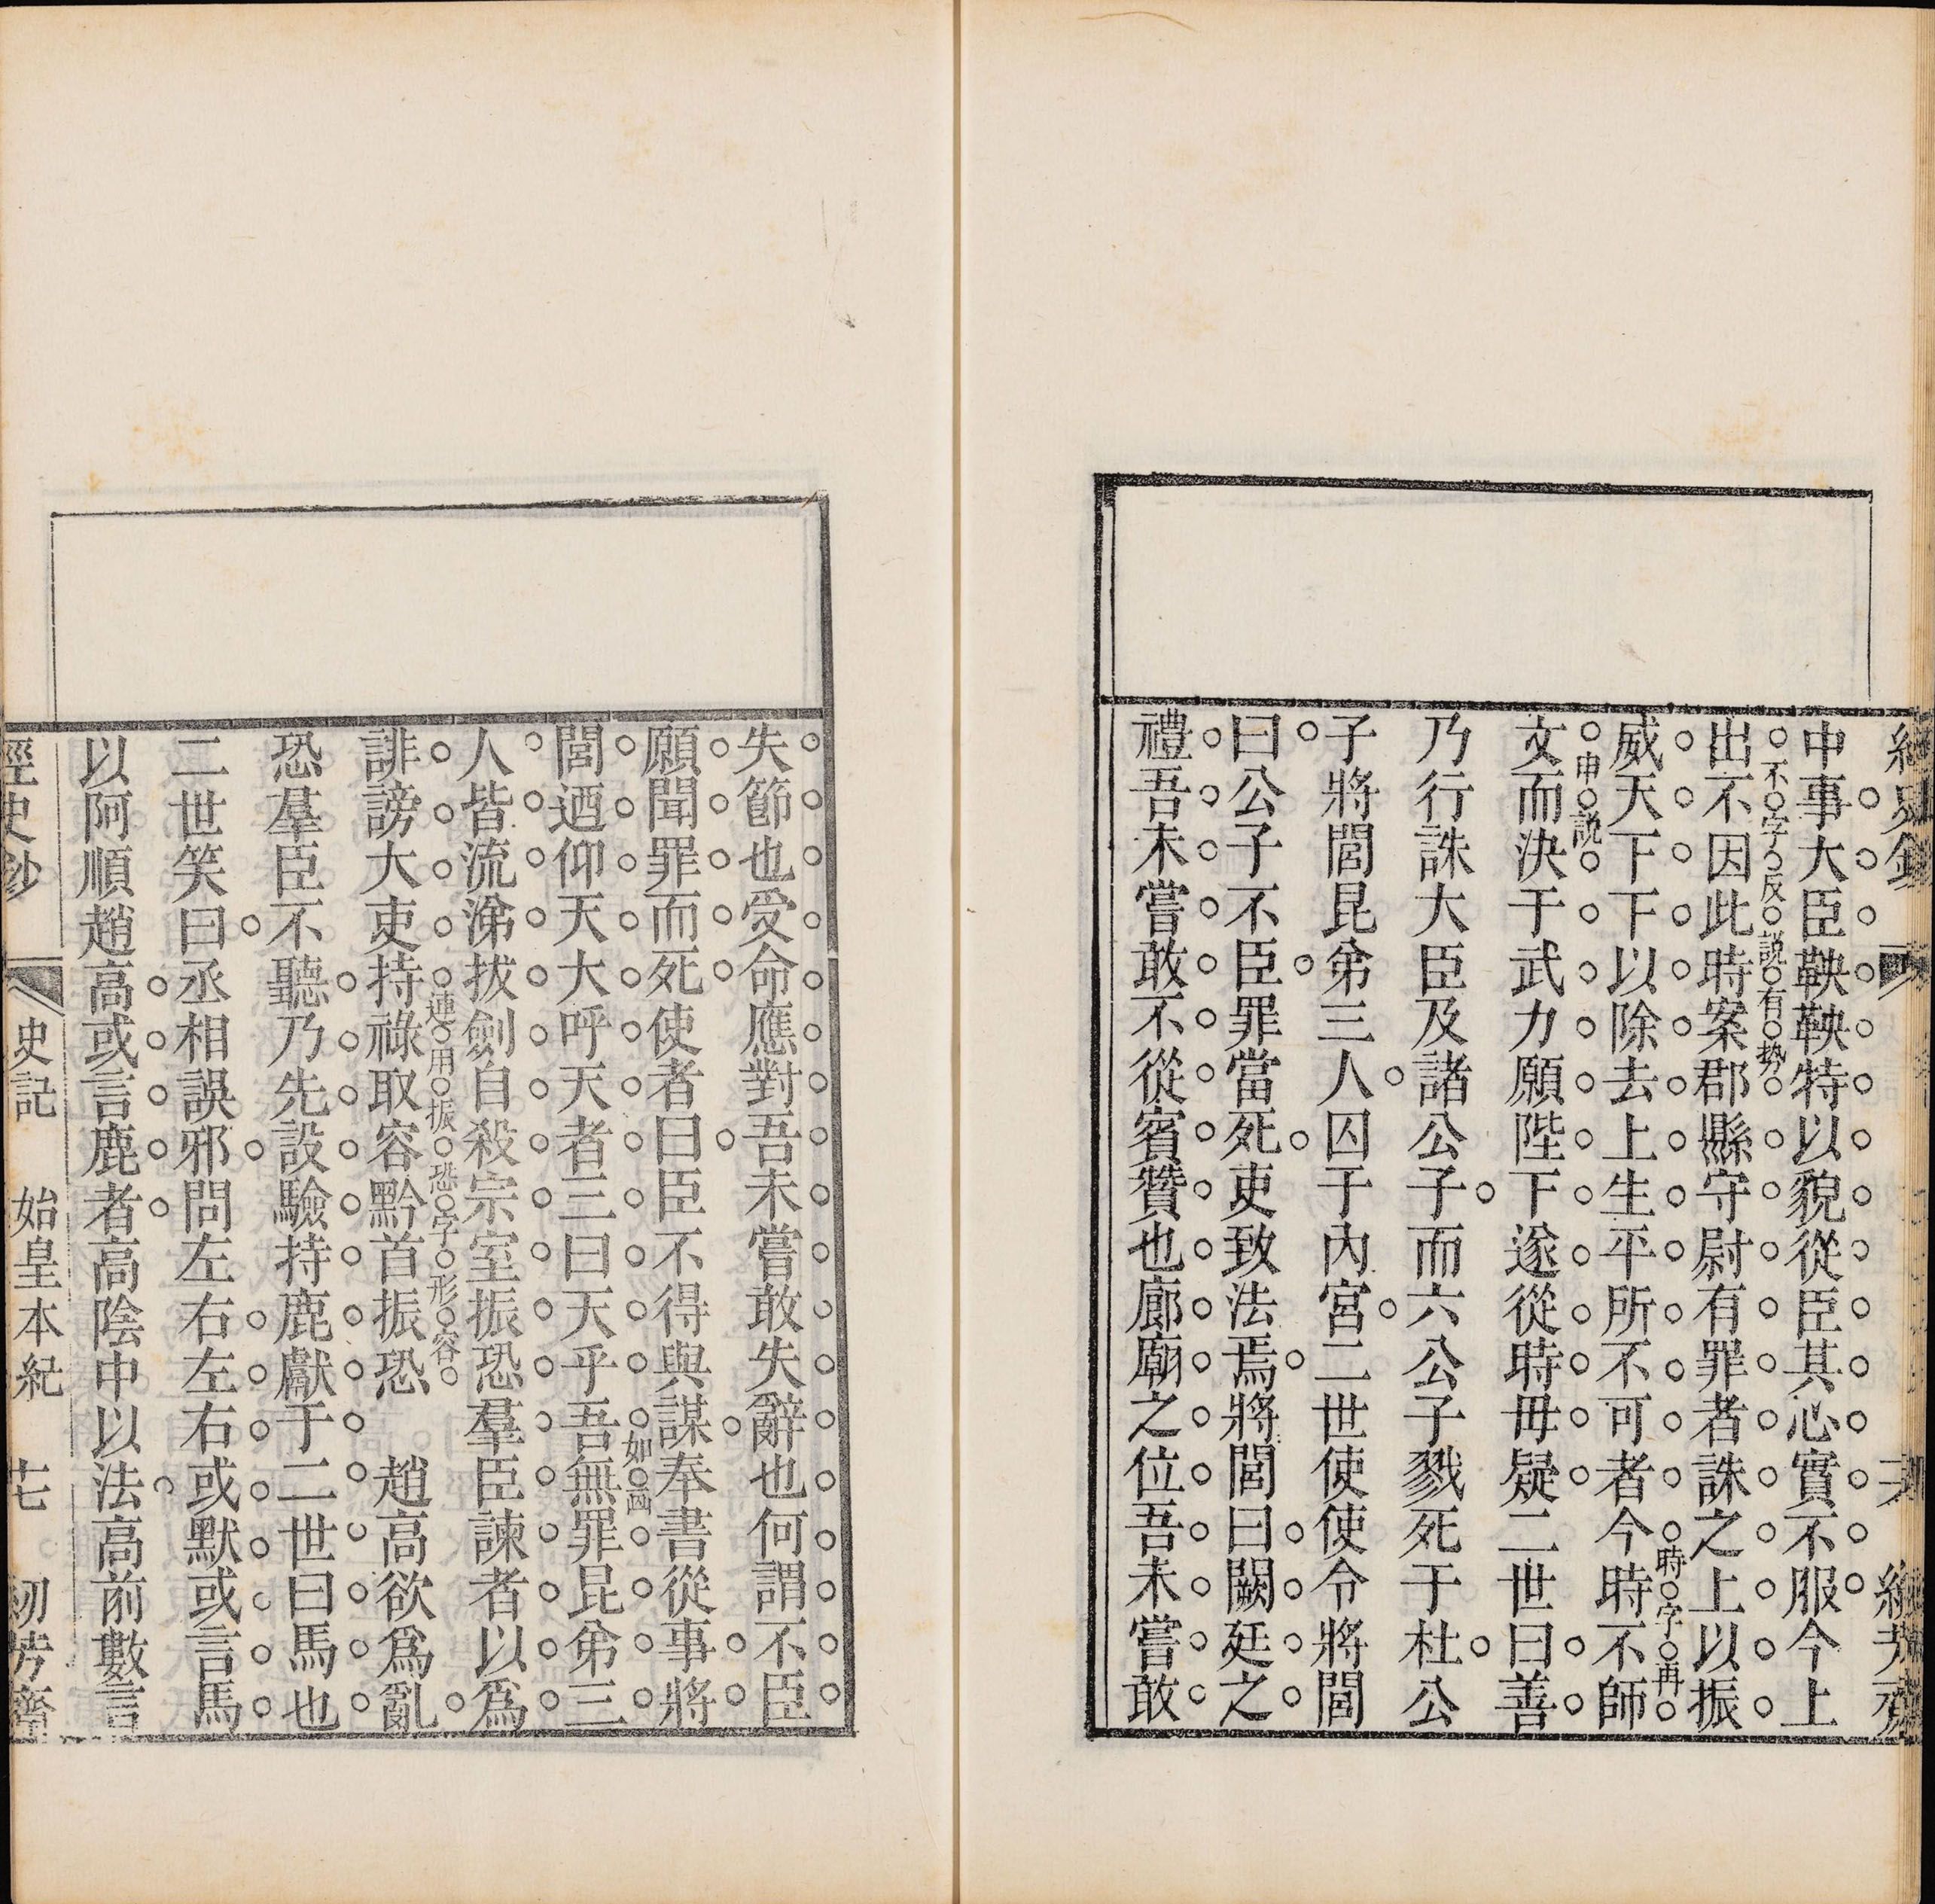 中事大臣鞅鞅特以貌從臣其心實不服今上
不字反說有勢
出不因此時案郡縣守尉有罪者誅之上以振
時字再
威天下下以除去上生平所不可者今時不師
申說
文而決于武力願陛下遂從時毋疑二世曰善
乃行誅大臣及諸公子而六公子戮死于杜公
子將閭昆弟三人囚于內宮二世使使令將閭
曰公子不臣罪當死吏致法焉將閭曰闕廷之
禮吾未嘗敢不從賓贊也廊廟之位吾未嘗敢
失節也受命應對吾未嘗敢失辭也何謂不臣
願聞罪而死使者曰臣不得與謀奉書從事將
如画
閭迺仰天大呼天者三曰天乎吾無罪昆弟三
人皆流涕拔劍自殺宗室振恐羣臣諫者以爲
連用振恐字形容
誹謗大吏持祿取容黔首振恐　趙高欲爲亂
恐羣臣不聽乃先設驗持鹿獻于二世曰馬也
二世笑曰丞相誤邪問左右左右或默或言馬
以阿順趙高或言鹿者高陰中以法高前數言
經史鈔　史記　始皇本紀　七　紉芳齋